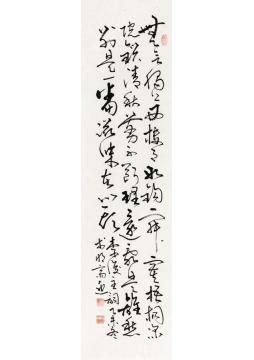 無言獨上西樓月如鈎寂寞梧桐深
院鎖清秋剪不斷理還亂是離愁
別是一番滋味在心頭
李後主詞乙未冬